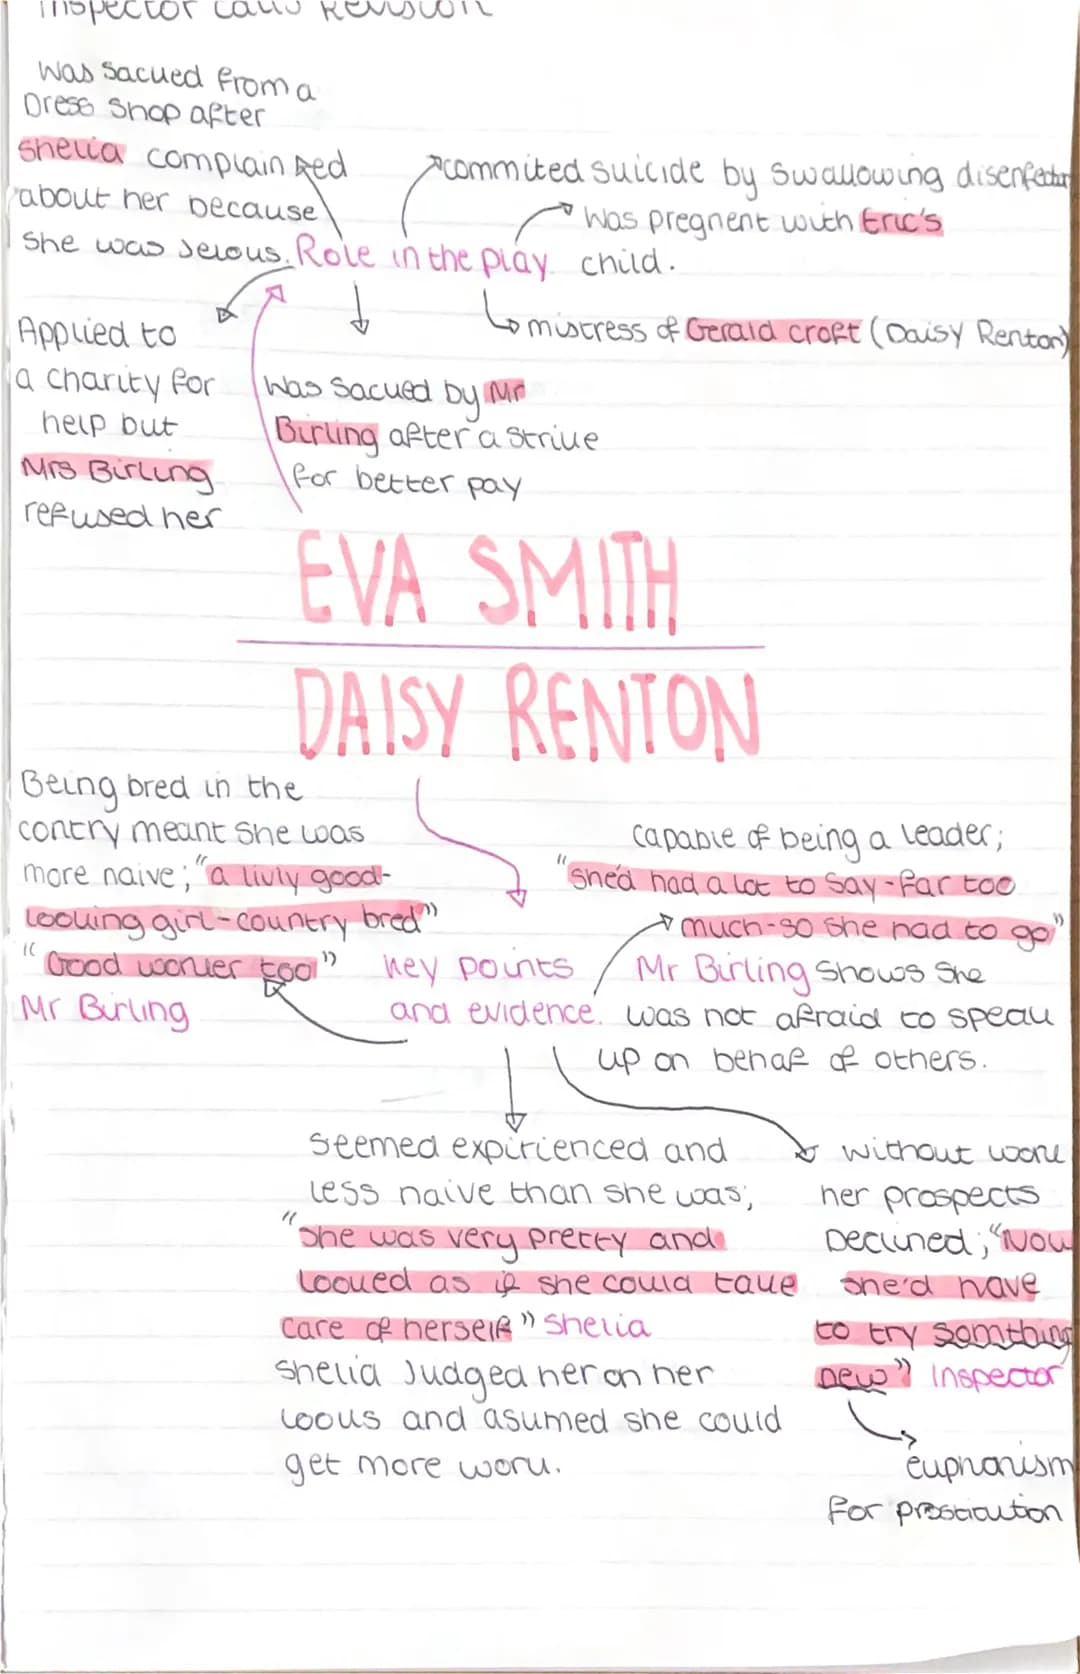 Inspector calls Revision
Was sacked from a
Dress Shop after
Shelia complained
about her because
She was jelous.
commited suicide by swallowing disenfectar
Was pregnent with Eric's
child.
Role in the play
mistress of Gerald croft (Daisy Renton)
Applied to
a charity for
help but
Mrs Birling
refused her
Was sacked by Mr
Birling after a strike
for better pay
EVA SMITH
DAISY RENTON
Being bred in the
contry meant she was
more naive; "a livly good-
looking girl-country bred"
"Good worker too"
Mr Birling
capable of being a leader;
"She'd had a lot to say-far too
much-so she had to go"
Mr Birling shows she
was not afraid to speak
up on behaf of others.
key points
and evidence.
seemed expirienced and
less naive than she was;
"She was very pretty and
looked as if she could take
care of herself" Shelia
Shelia Judged her on her
looks and asumed she could
get more work.
without work
her prospects
Declined; "Now
she'd have
to try somthing
new" Inspector
euphanism
for prostitution